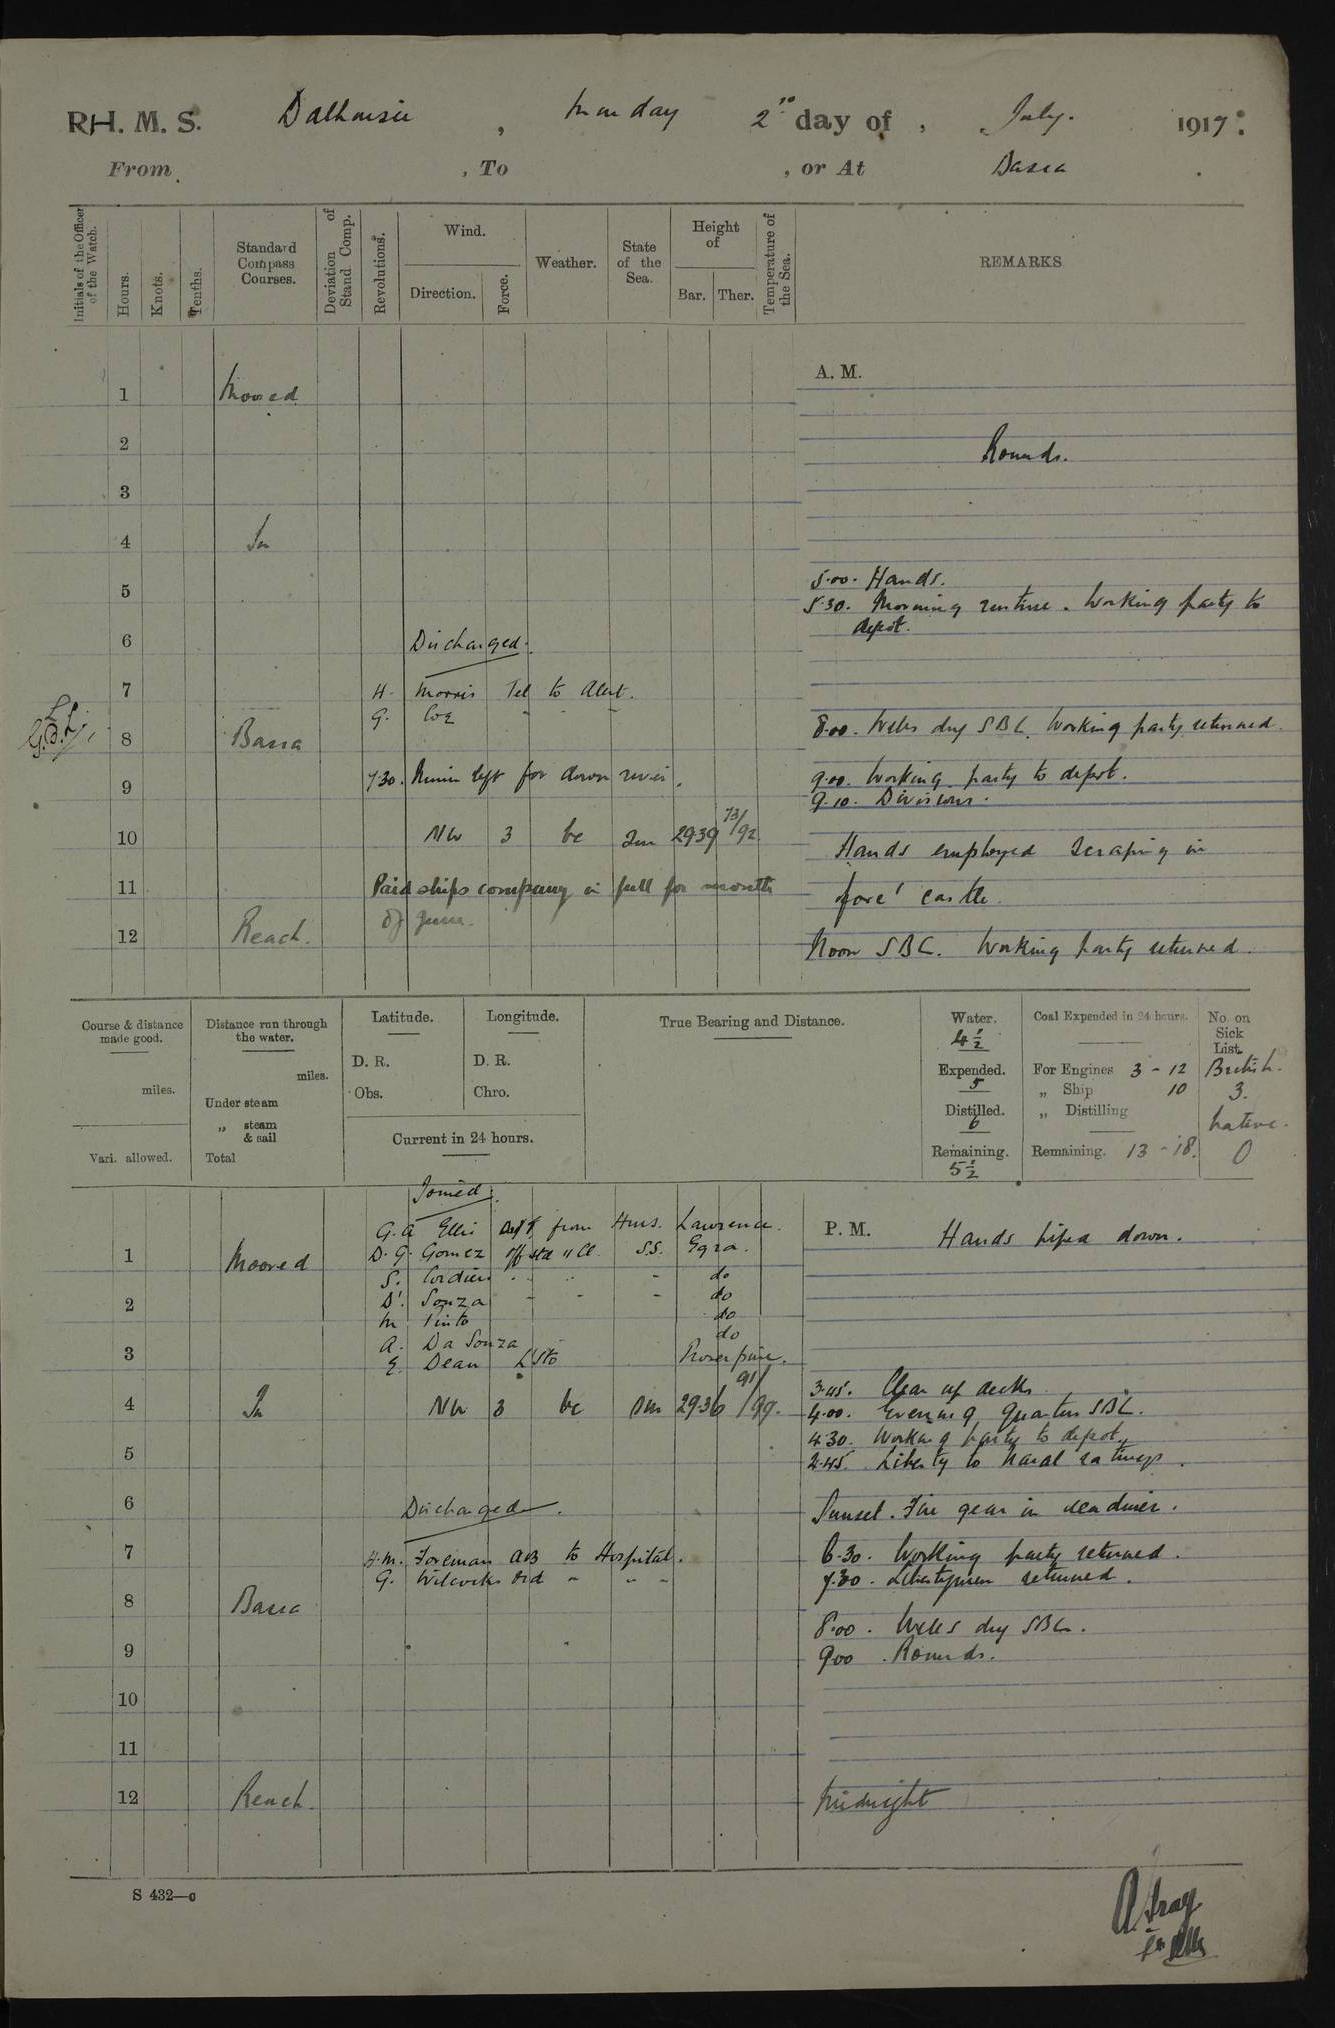 R.H. M. S. Dalhousie, Monday 2nd day of, July. 1917.
From , To , or At Basra
Initials of the Officer of the Watch.
Hours.
Knots.
Tenths.
Standard Compass Courses.
Deviation of Stand Comp.
Revolutions.
Wind.
Direction.
Force.
Weather.
State of the Sea.
Height of
Bar. Ther.
Temperature of the Sea.
REMARKS
A. M.
1 Moored
2 Rounds.
3
4 In
5.00. Hands.
5 5.30. Morning routine. Working party to
depot.
6 Discharged.
7 H. Morris Tel to Alert.
G. Coe " " "
8 Basra 8.00. Wells dry SBC. Working party returned.
7.30. Nimin left for down river. 9.00. Working party to depot.
9 9.10. Divisions.
10 NW 3 bc Sm 2939 73/92 Hands employed scraping in
11 Paid ships company in full for month fore'castle.
of June.
12 Reach. Noon SBC. Working party returned.
Course & distance made good.
miles.
Vari. allowed.
Distance run through the water.
miles.
Under steam
„ steam & sail
Total
Latitude.
D. R.
Obs.
Longitude.
D. R.
Chro.
Current in 24 hours.
True Bearing and Distance.
Water.
4½
Expended.
5
Distilled.
6
Remaining.
5½
Coal Expended in 24 hours.
For Engines 3 - 12
„ Ship 10
„ Distilling
Remaining. 13 - 18.
No. on Sick List.
British.
3.
Native.
0
Joined.
P. M. Hands piped down.
G. A Ellis from Hms. Lawrence.
1 Moored D. G. Gomez S.S. Egra.
S. Cordiero " " " do
2 D'. Souza " " " do
M Pinto do
A. Da Souza do
3 E. Dean L Sto Proserpine.
3.45. Clear up decks
4 In NW 3 bc Sm 2936 91/99. 4.00. Evening Quarters SBC.
4.30. Working party to depot.
5 2.45. Liberty to Naval ratings.
6 Discharged. Sunset. Fire gear in readiness.
7 H.M. Foreman AB to Hospital. 6.30. Working party returned.
G. Wilcocks Ord " " " 7.30. Libertymen returned.
8 Basra
8.00. Wells dry SBC.
9 9.00. Rounds.
10
11
12 Reach. Midnight
S 432—c